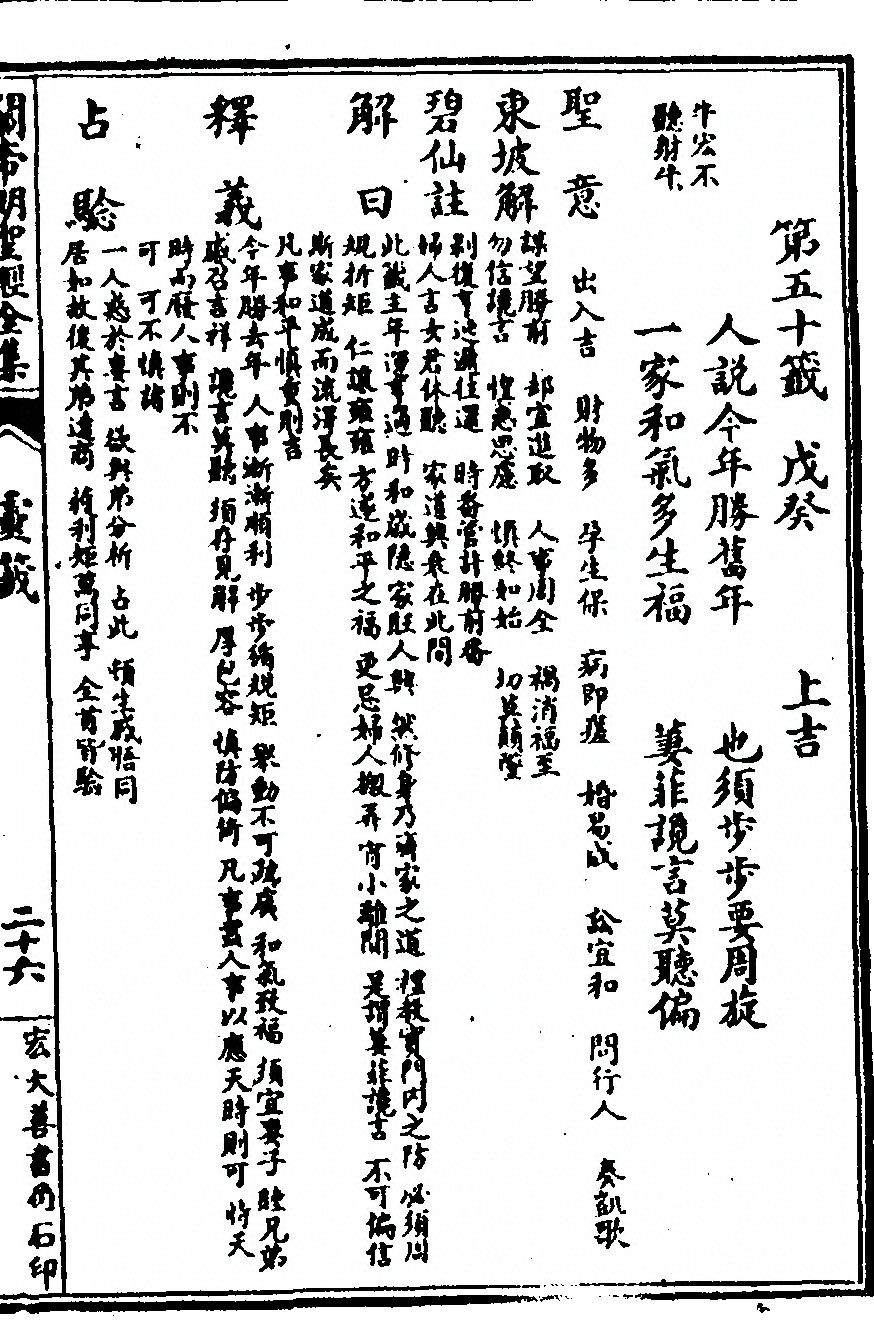 第五十籤 戊癸 上吉
牛宏不
聽射牛
人說今年勝舊年 也須步步要周旋
一家和氣多生福 萋菲讒言莫聽偏
聖意 出入吉 財物多 孕生保 病即痊 婚易成 訟宜和 問行人 奏凱歌
東坡解 謀望勝前 却宜進取 人事周全 禍消福至
勿信讒言 惶惑思慮 慎終如始 切莫顛墜
碧仙註 剝復亨迍遞往還 時番營計勝前番
婦人言女君休聽 家道興衰在此間
解曰 此籤主年運亨通 時和歲隱 家旺人興 然修身乃齊家之道 禮教實門內之防 必須周
規折矩 仁讓雍雍 方遂和平之福 更忌婦人搬弄 宵小離間 是謂萋菲讒言 不可偏信
斯家道成而流澤長矣
凡事和平慎重則吉
釋義 今年勝去年 人事漸漸順利 步步循規矩 舉動不可疏虞 和氣致福 須宜妻子 睦兄弟
感召吉祥 讒言莫聽 須存見解 厚包容 慎防偏倚 凡事盡人事以應天時則可 恃天
時而廢人事則不
可 可不慎諸
占驗 一人惑於妻言 欲與弟分析 占此 頓生感悟同
居如故 後其弟遠商 獲利矩萬同享 全首皆驗
關帝明聖經全集 靈籤 二十六 宏大善書局石印